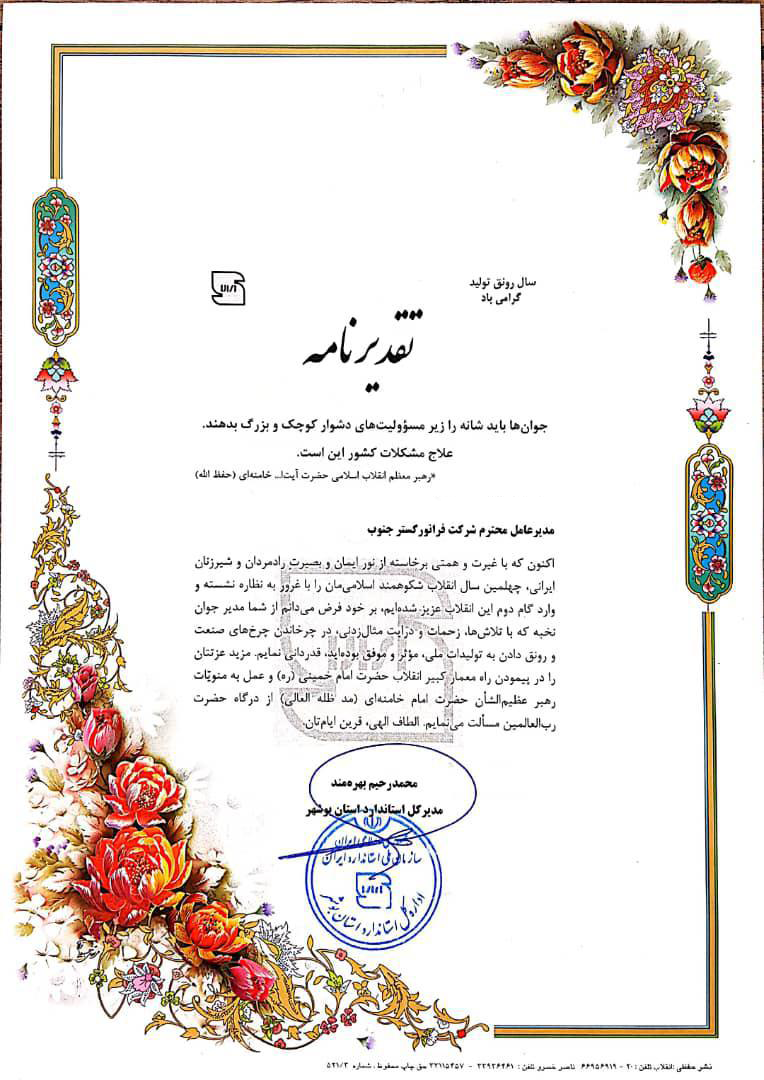 سال رونق تولید
گرامی باد
تقدیرنامه
جوان‌ها باید شانه را زیر مسؤولیت‌های دشوار کوچک و بزرگ بدهند.
علاج مشکلات کشور این است.
*رهبر معظم انقلاب اسلامی حضرت آیت‌ا... خامنه‌ای (حفظ الله)
مدیرعامل محترم شرکت فرانورگستر جنوب
اکنون که با غیرت و همتی برخاسته از نور ایمان و بصیرت رادمردان و شیرزنان
ایرانی، چهلمین سال انقلاب شکوهمند اسلامی‌مان را با غرور به نظاره نشسته و
وارد گام دوم این انقلاب عزیز شده‌ایم، بر خود فرض می‌دانم از شما مدیر جوان
نخبه که با تلاش‌ها، زحمات و درایت مثال‌زدنی، در چرخاندن چرخ‌های صنعت
و رونق دادن به تولیدات ملی، مؤثر و موفق بوده‌اید، قدردانی نمایم. مزید عزتتان
را در پیمودن راه معمار کبیر انقلاب حضرت امام خمینی (ره) و عمل به منویّات
رهبر عظیم‌الشأن حضرت امام خامنه‌ای (مد ظله العالی) از درگاه حضرت
رب‌العالمین مسألت می‌نمایم. الطاف الهی، قرین ایام‌تان.
محمدرحیم بهره‌مند
مدیرکل استاندارد استان بوشهر
سازمان ملی استاندارد ایران
اداره کل استاندارد استان بوشهر
نشر حفظی: انقلاب تلفن: ۲۰ - ۶۶۹۵۶۹۱۹ ناصر خسرو تلفن: ۳۳۹۳۶۴۶۱ - ۳۳۱۱۵۴۵۷ حق چاپ محفوظ، شماره ۵۲۱/۳